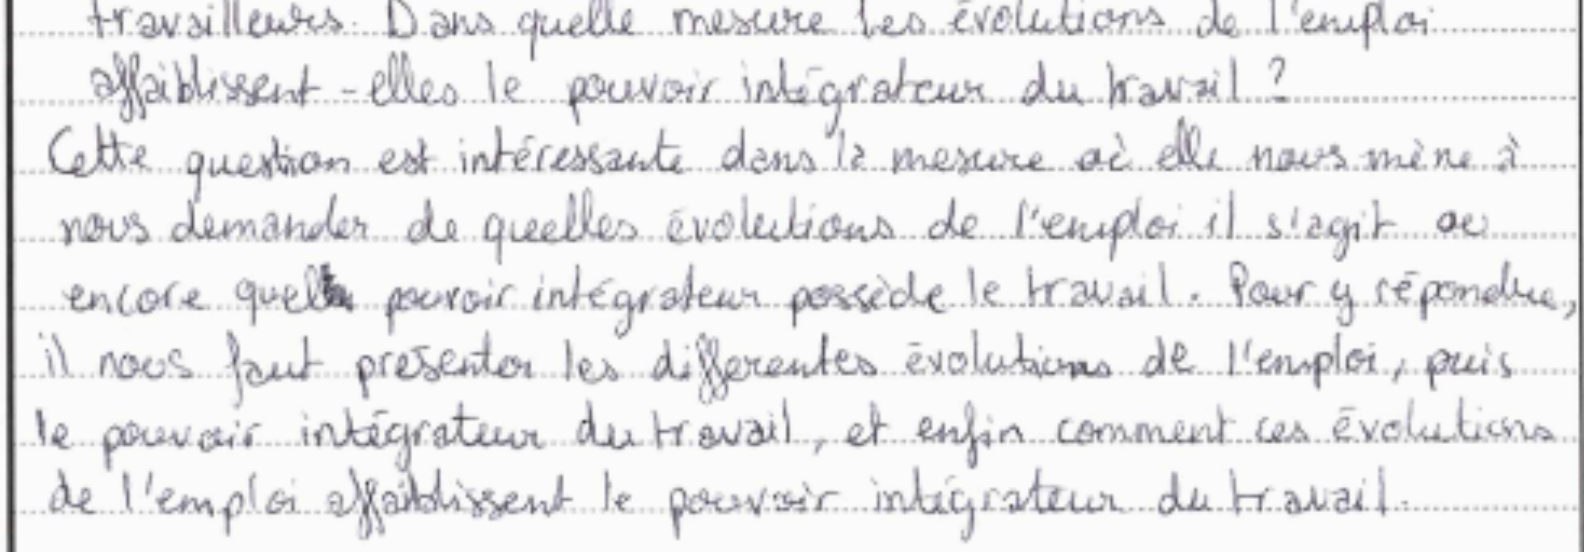 travailleurs. Dans quelle mesure les évolutions de l'emploi
affaiblissent-elles le pouvoir intégrateur du travail ?
Cette question est intéressante dans la mesure où elle nous mène à
nous demander de quelles évolutions de l'emploi il s'agit ou
encore quel pouvoir intégrateur possède le travail. Pour y répondre,
il nous faut présenter les différentes évolutions de l'emploi, puis
le pouvoir intégrateur du travail, et enfin comment ces évolutions
de l'emploi affaiblissent le pouvoir intégrateur du travail.